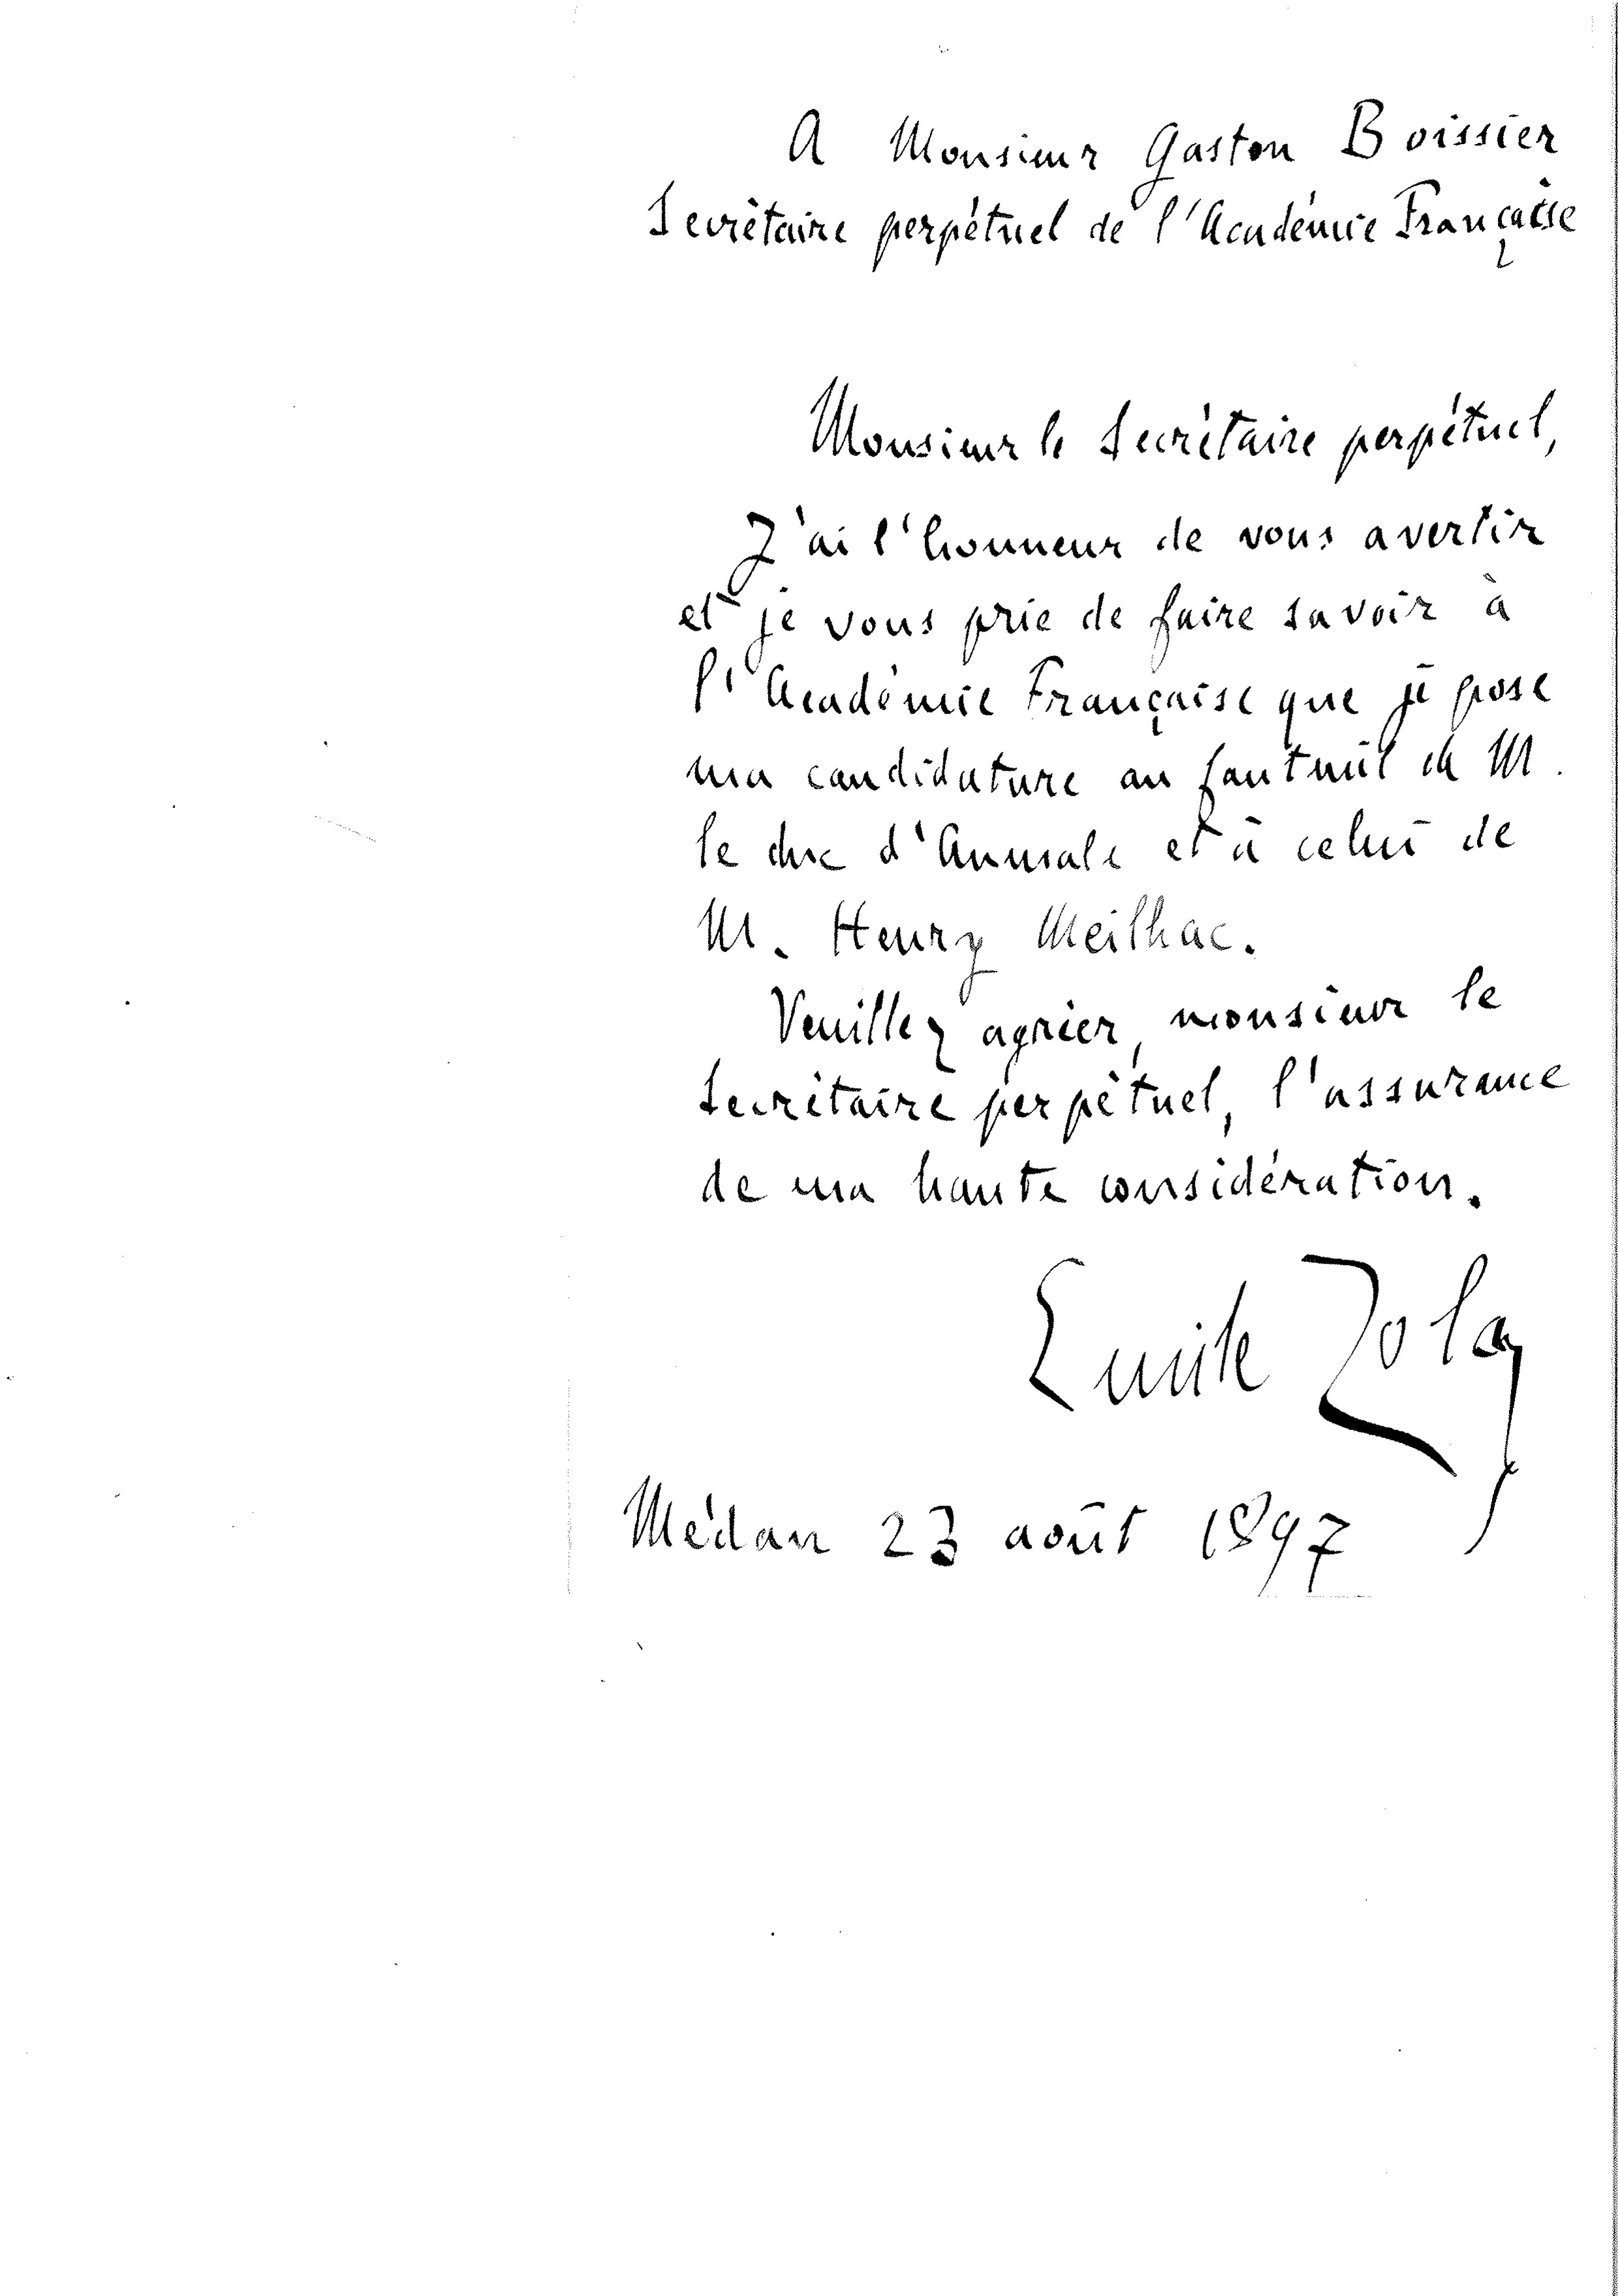 A Monsieur Gaston Boissier
Secrétaire perpétuel de l'Académie Française
Monsieur le Secrétaire perpétuel,
J'ai l'honneur de vous avertir
et je vous prie de faire savoir à
l'Académie Française que je pose
ma candidature au fauteuil de M.
le duc d'Aumale et à celui de
M. Henry Meilhac.
Veuillez agréer, monsieur le
Secrétaire perpétuel, l'assurance
de ma haute considération.
Emile Zola
Médan 23 août 1897